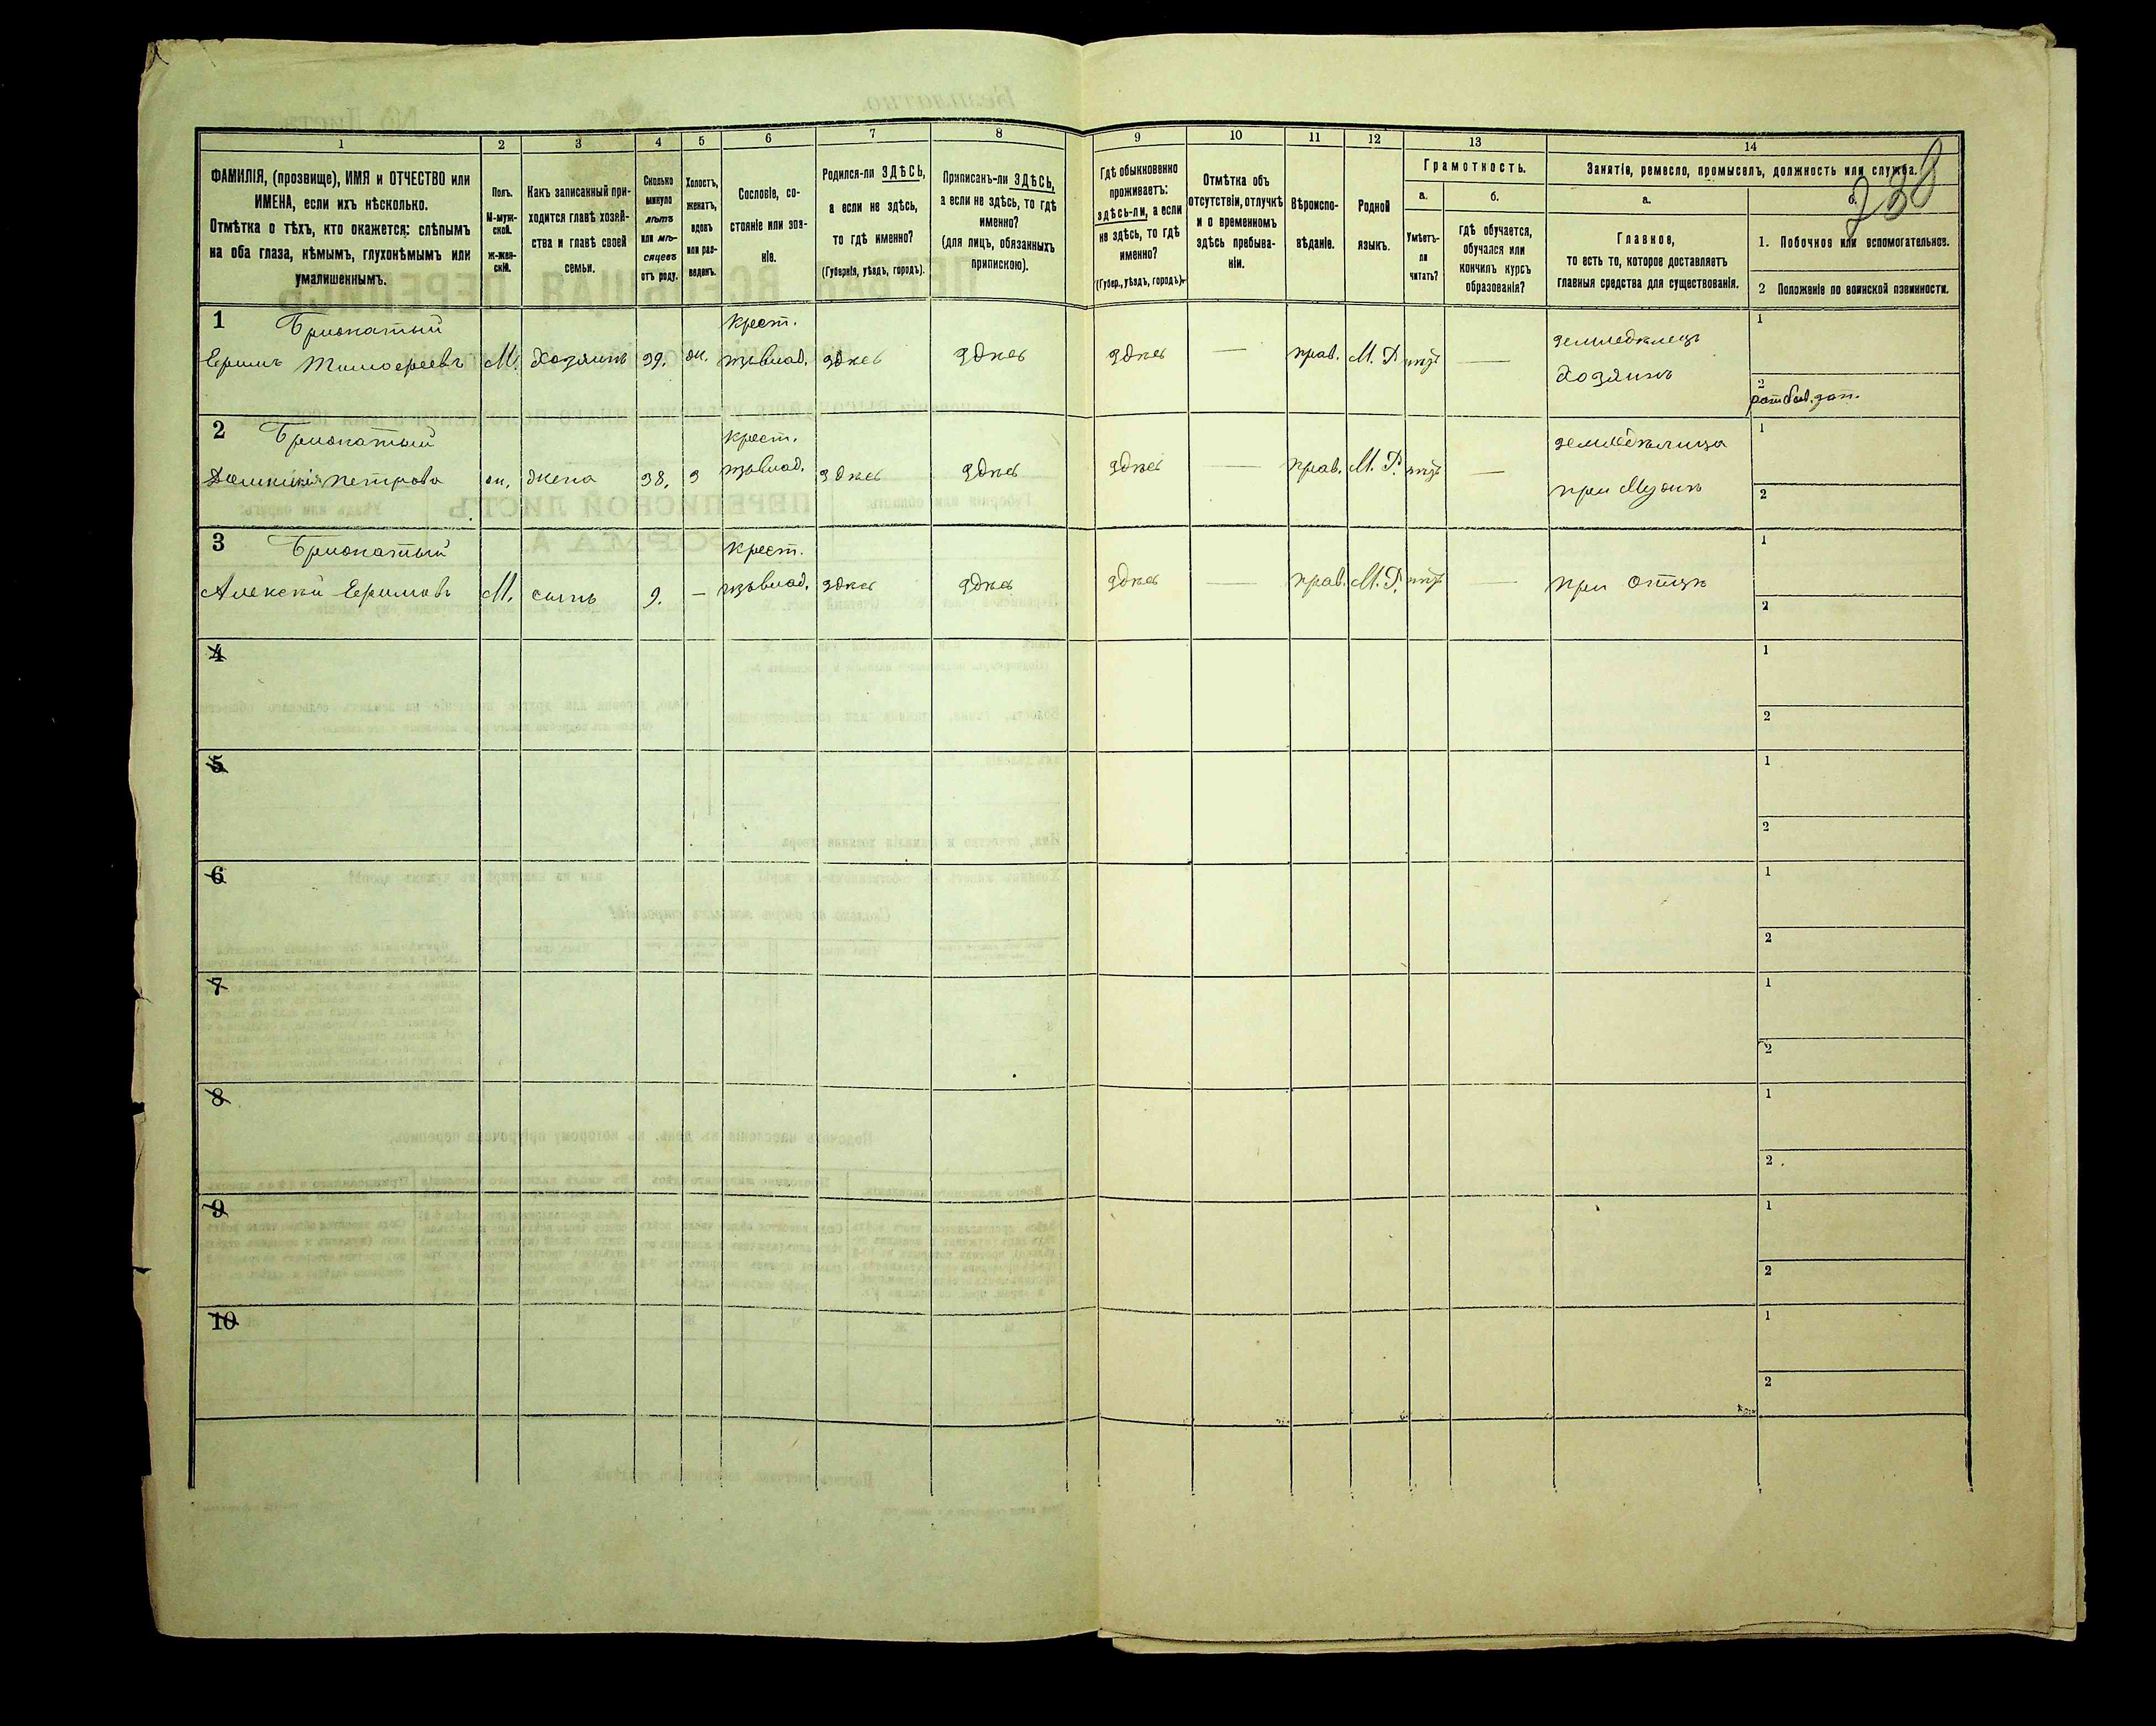 238
1
2
3
4
5
6
7
8
9
10
11
12
13
14
ФАМИЛІЯ, (прозвище), ИМЯ и ОТЧЕСТВО или
ИМЕНА, если ихъ нѣсколько.
Отмѣтка о тѣхъ, кто окажется: слѣпымъ
на оба глаза, нѣмымъ, глухонѣмымъ или
умалишеннымъ.
Полъ.
М-муж-
ской.
ж-жен-
скій.
Какъ записанный при-
ходится главѣ хозяй-
ства и главѣ своей
семьи.
Сколько
минуло
лѣтъ
или мѣ-
сяцевъ
отъ роду.
Холостъ,
женатъ,
вдовъ
или раз-
веденъ.
Сословіе, со-
стояніе или зва-
ніе.
Родился-ли ЗДѢСЬ,
а если не здѣсь,
то гдѣ именно?
(Губернія, уѣздъ, городъ).
Приписанъ-ли ЗДѢСЬ,
а если не здѣсь, то гдѣ
именно?
(для лицъ, обязанныхъ
припискою).
Гдѣ обыкновенно
проживаетъ:
здѣсь-ли, а если
не здѣсь, то гдѣ
именно?
(Губер., уѣздъ, городъ).
Отмѣтка объ
отсутствіи, отлучкѣ
и о временномъ
здѣсь пребыва-
ніи.
Вѣроиспо-
вѣданіе.
Родной
языкъ.
Грамотность.
а.
Умѣетъ-
ли
читать?
б.
гдѣ обучается,
обучался или
кончилъ курсъ
образованія?
Занятіе, ремесло, промыселъ, должность или служба.
а.
Главное,
то есть то, которое доставляетъ
главныя средства для существованія.
б.
1. Побочное или вспомогательное.
2 Положеніе по воинской повинности.
1
крест.
М. Хозяинъ 39. ж. здѣсь здѣсь здѣсь — прав. М. Р. нѣтъ —
земледѣлецъ
Хозяинъ
1
2
2
крест.
Петрова ж. жена 38. з здѣсь здѣсь здѣсь — прав. М. Р. нѣтъ —
при Мужѣ
1
2
3
крест.
Алексѣй Ефимовъ М. сынъ 9. — здѣсь здѣсь здѣсь — прав. М. Р. нѣтъ — при Отцѣ
1
2
4
1
2
5
1
2
6
1
2
7
1
2
8
1
2
9
1
2
10
1
2